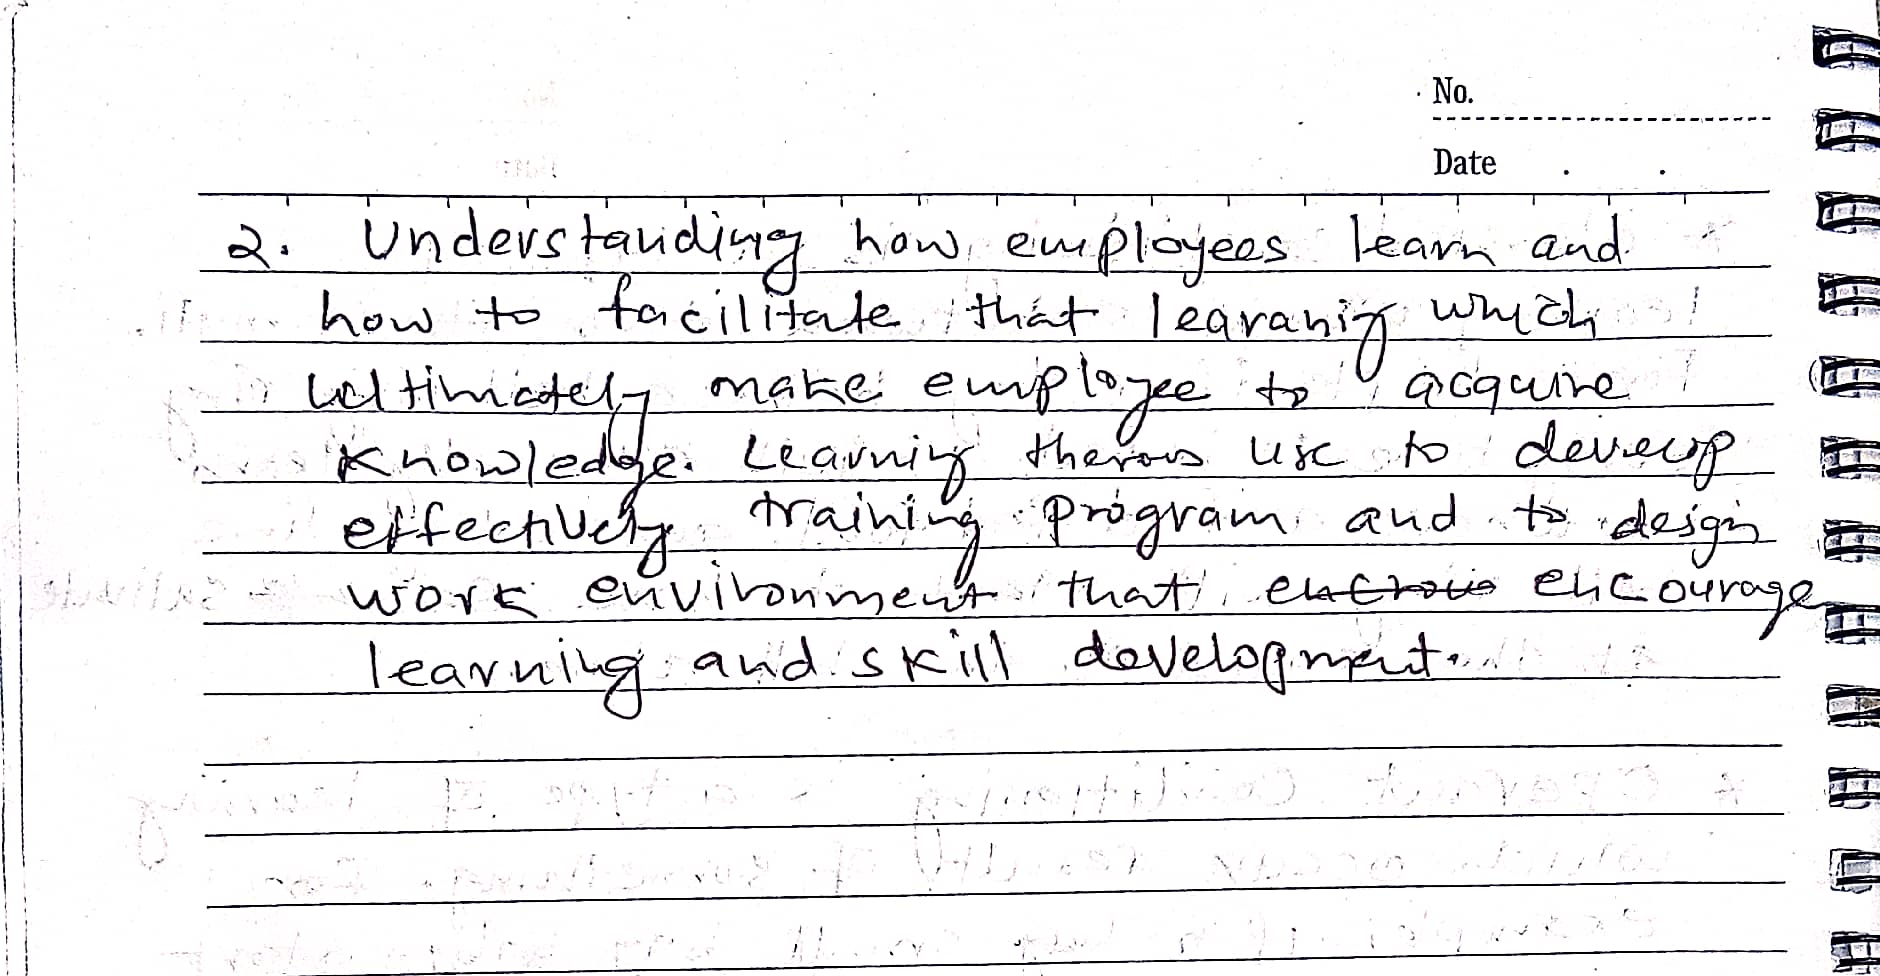 No.
Date
2. Understanding how employees learn and
how to facilitate that learanig which
ultimately make employee to acquire
knowledge. Learning use to develop
effectively training program and to design
work environment that encourage
learning and skill development.